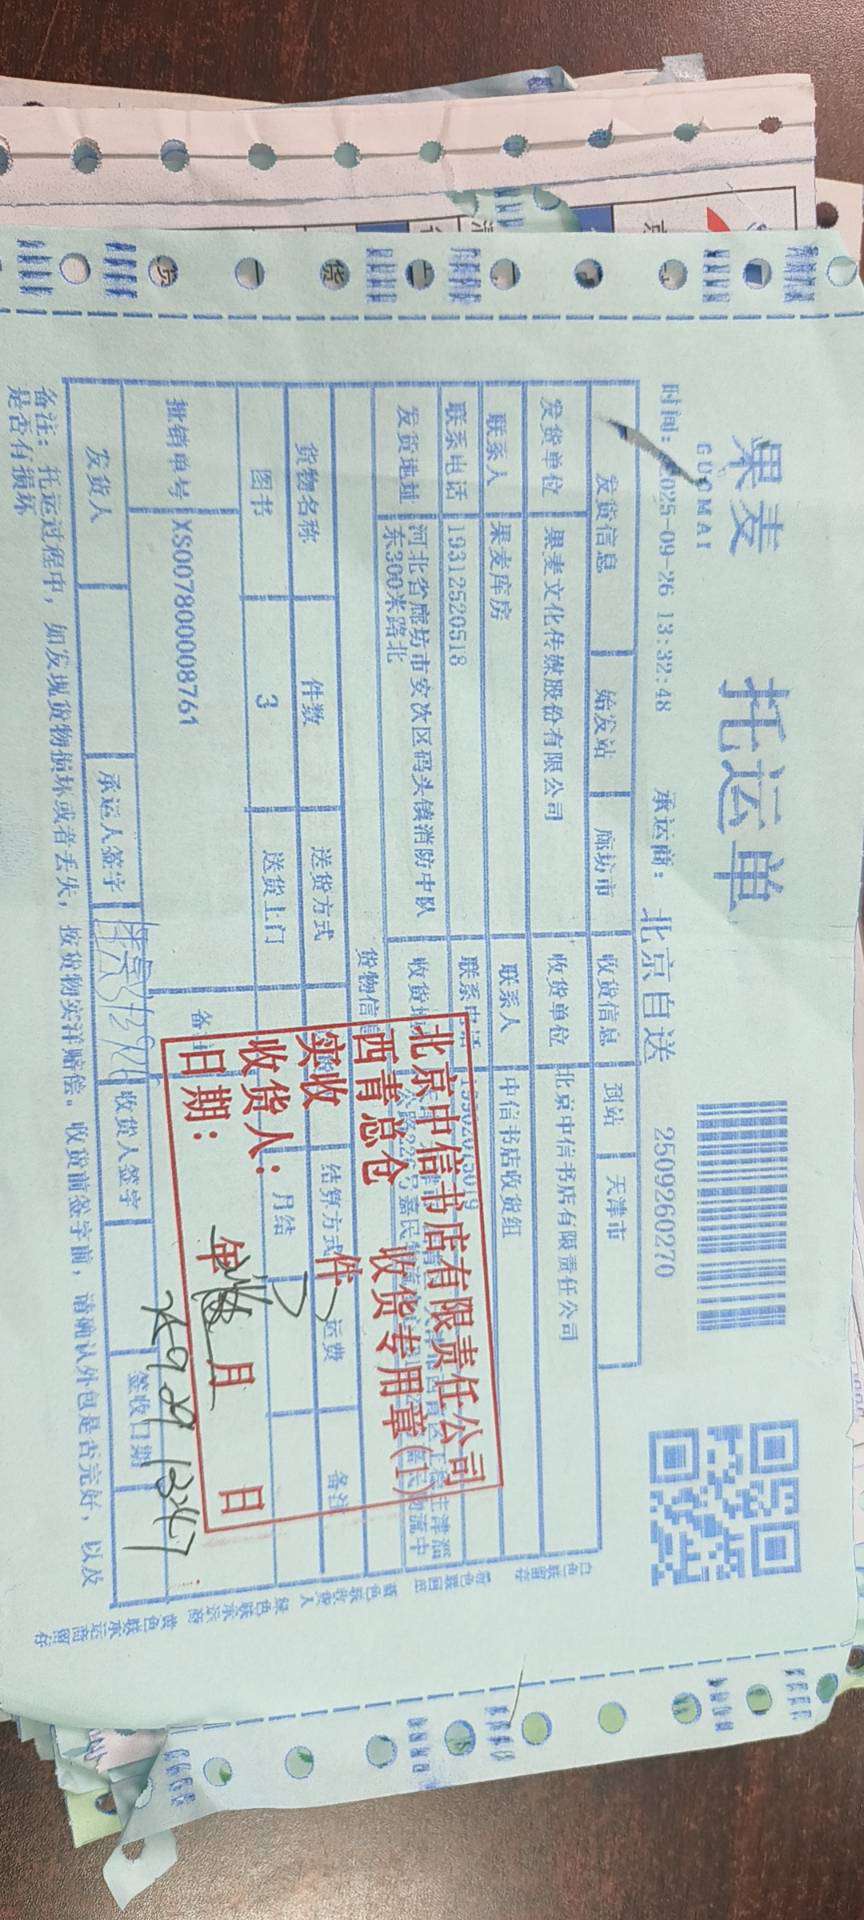 果麦
GUOMAI
托运单
2509260270
时间：2025-09-26 13:32:48
承运商：
北京自送
发货信息
始发站
廊坊市
收货信息
到站
天津市
发货单位
果麦文化传媒股份有限公司
收货单位
北京中信书店有限责任公司
联系人
果麦库房
联系人
中信书店收货组
联系电话
19312520518
联系电话
发货地址
河北省廊坊市安次区码头镇消防中队
东300米路北
货物信息
货物名称
件数
送货方式
结算方式
运费
备注
图书
3
送货上门
月结
批销单号
XS007800008761
备注
发货人
承运人签字
收货人签字
签收日期
备注：托运过程中，如发现货物损坏或者丢失，按货物实洋赔偿。收货前签字前，请确认外包是否完好，以及
是否有损坏
北京中信书店有限责任公司
西青总仓 收货专用章(1)
实收 件
收货人：
日期： 年 月 日
白色联留存
粉色联回单
蓝色联收货人
绿色联承运商
黄色联承运商留存